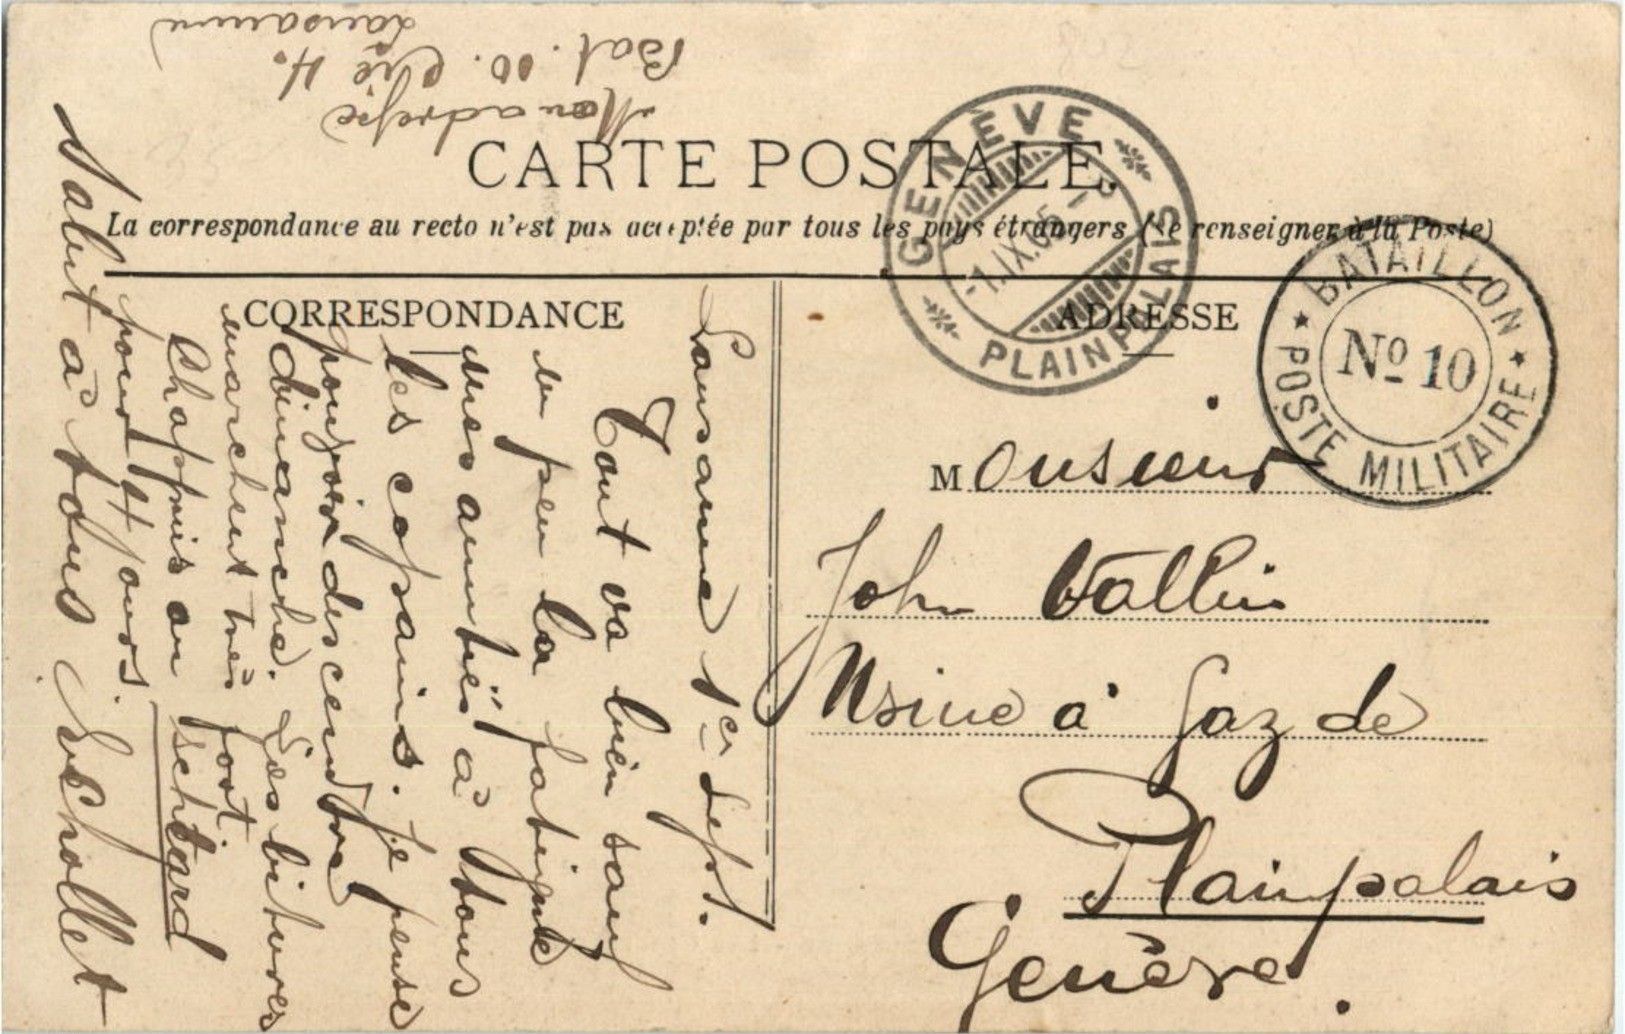 Mon adresse
Bat. 10. Cie 4.
Lausanne
CARTE POSTALE.
La correspondance au recto n'est pas acceptée par tous les pays étrangers (Se renseigner à la Poste)
GENÈVE
-1.IX.05-
PLAINPALAIS
BATAILLON
No 10
POSTE MILITAIRE
CORRESPONDANCE
Lausanne 1er Sept.
Tout va bien sauf
un peu la fatigue
mes amitiés à tous
les copains. Je pense
pouvoir descendre
dimanche. Les bitures
marchent très fort
Chappuis au schtard
pour 4 jours.
Salut à tous Ls Chollet
ADRESSE
Monsieur
John Wallin
Usine à Gaz de
Plainpalais
Genève.